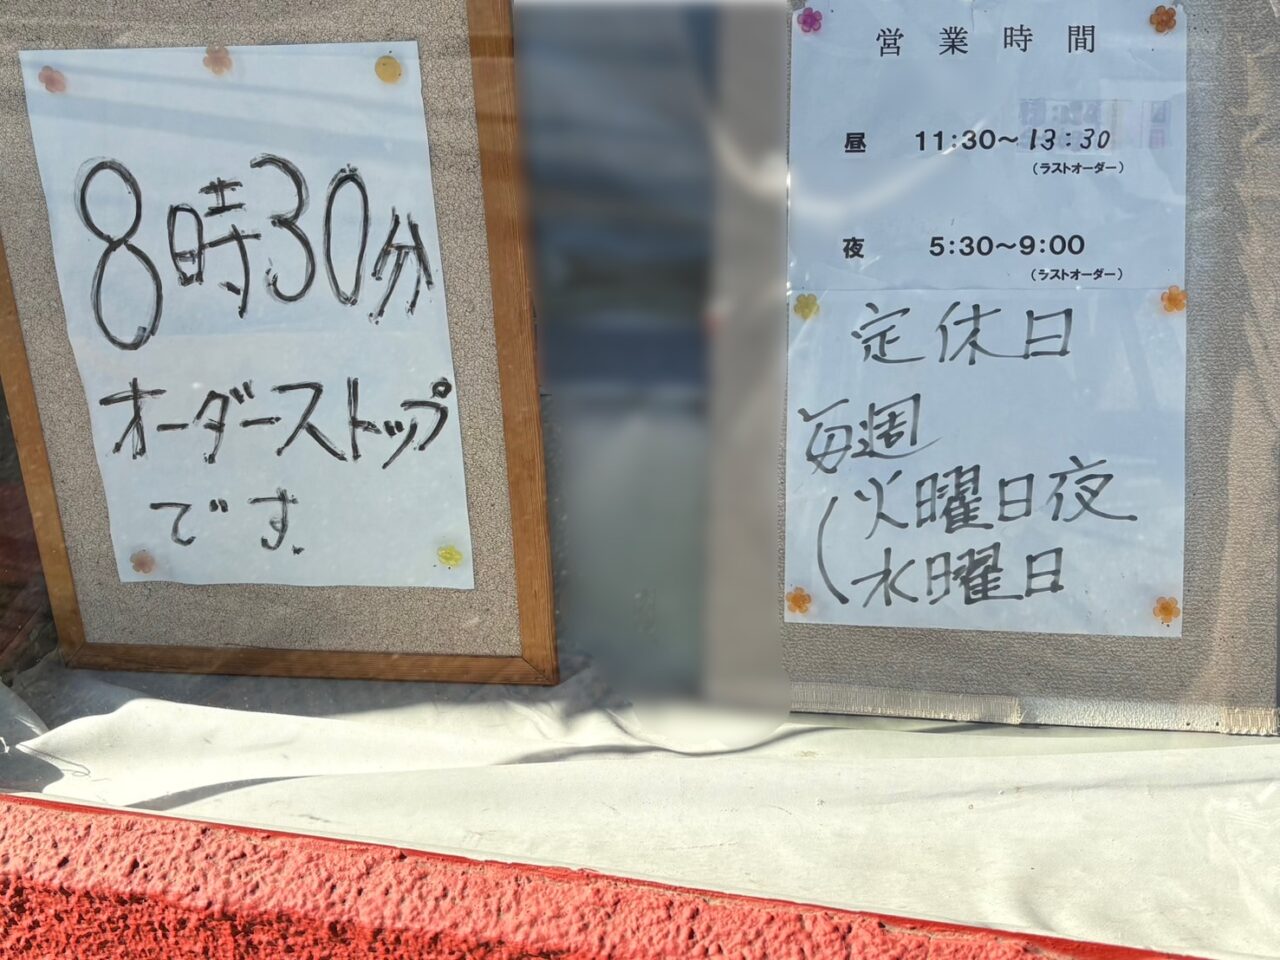 8時30分
オーダーストップ
です.
営業時間
昼 11:30〜13:30
(ラストオーダー)
夜 5:30〜9:00
(ラストオーダー)
定休日
毎週
火曜日夜
水曜日